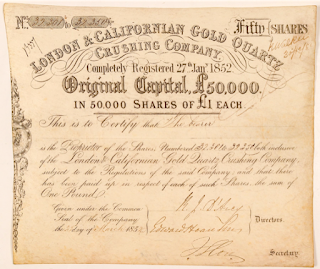 No. to
Fifty SHARES
LONDON & CALIFORNIAN GOLD QUARTZ
CRUSHING COMPANY.
Completely Registered 27th Jany 1852.
Original Capital, £50,000.
IN 50,000 SHARES OF £1 EACH
This is to Certify that The Bearer
is the Proprietor of the Shares Numbered to both inclusive
of the London & Californian Gold Quartz Crushing Company,
subject to the Regulations of the said Company and that there
has been paid up in respect of each of such Shares, the sum of
One Pound.
Given under the Common
Seal of the Company
the day of March 1852
Directors.
Secretary